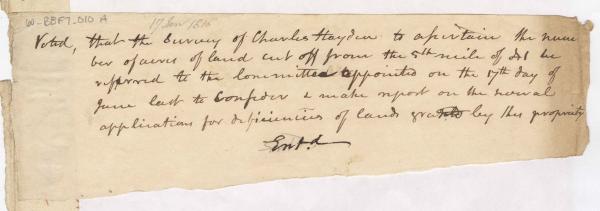 W-BBF7-010 A
17 Jan 1816
Voted, that the Survey of Charles Hayden to assertain the num
ber of acres of land cut off from the 5th mile of be
referred to the Committee appointed on the 17th day of
June last to Consider & make report on the several
applications for deficiencies of lands granted by this propriety
Entd